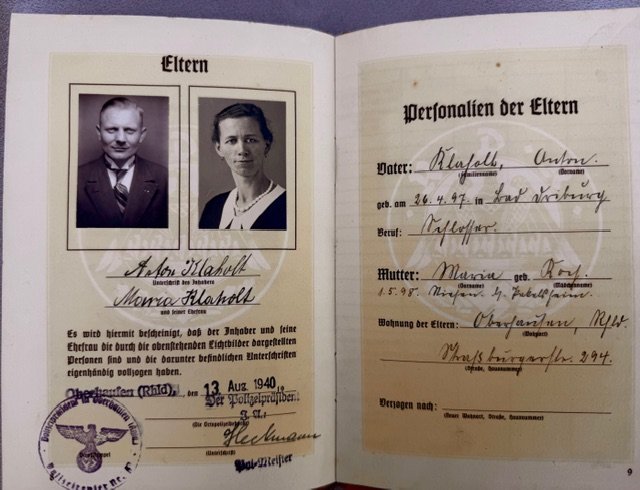 Eltern
Anton Klaholt
Unterschrift des Inhabers
Maria Klaholt
und seiner Ehefrau
Es wird hiermit bescheinigt, daß der Inhaber und seine
Ehefrau die durch die obenstehenden Lichtbilder dargestellten
Personen sind und die darunter befindlichen Unterschriften
eigenhändig vollzogen haben.
Oberhausen (Rhld), den 13 Aug. 1940
Der Polizeipräsident
J. A.:
(Die Ortspolizeibehörde)
Heckmann
(Unterschrift)
Pol-Meister
Personalien der Eltern
Vater: Klaholt, Anton.
(Familienname) (Vorname)
geb. am 26.4.97. in Bad Driburg
Beruf: Schlosser.
Mutter: Maria geb. Koch.
(Vorname) (Mädchenname)
1.5.98. Niesen b/ Peckelsheim.
Wohnung der Eltern: Oberhausen, Rhld.
(Wohnort)
Straßburgerstr. 294.
(Straße, Hausnummer)
Verzogen nach:
(Neuer Wohnort, Straße, Hausnummer)
9